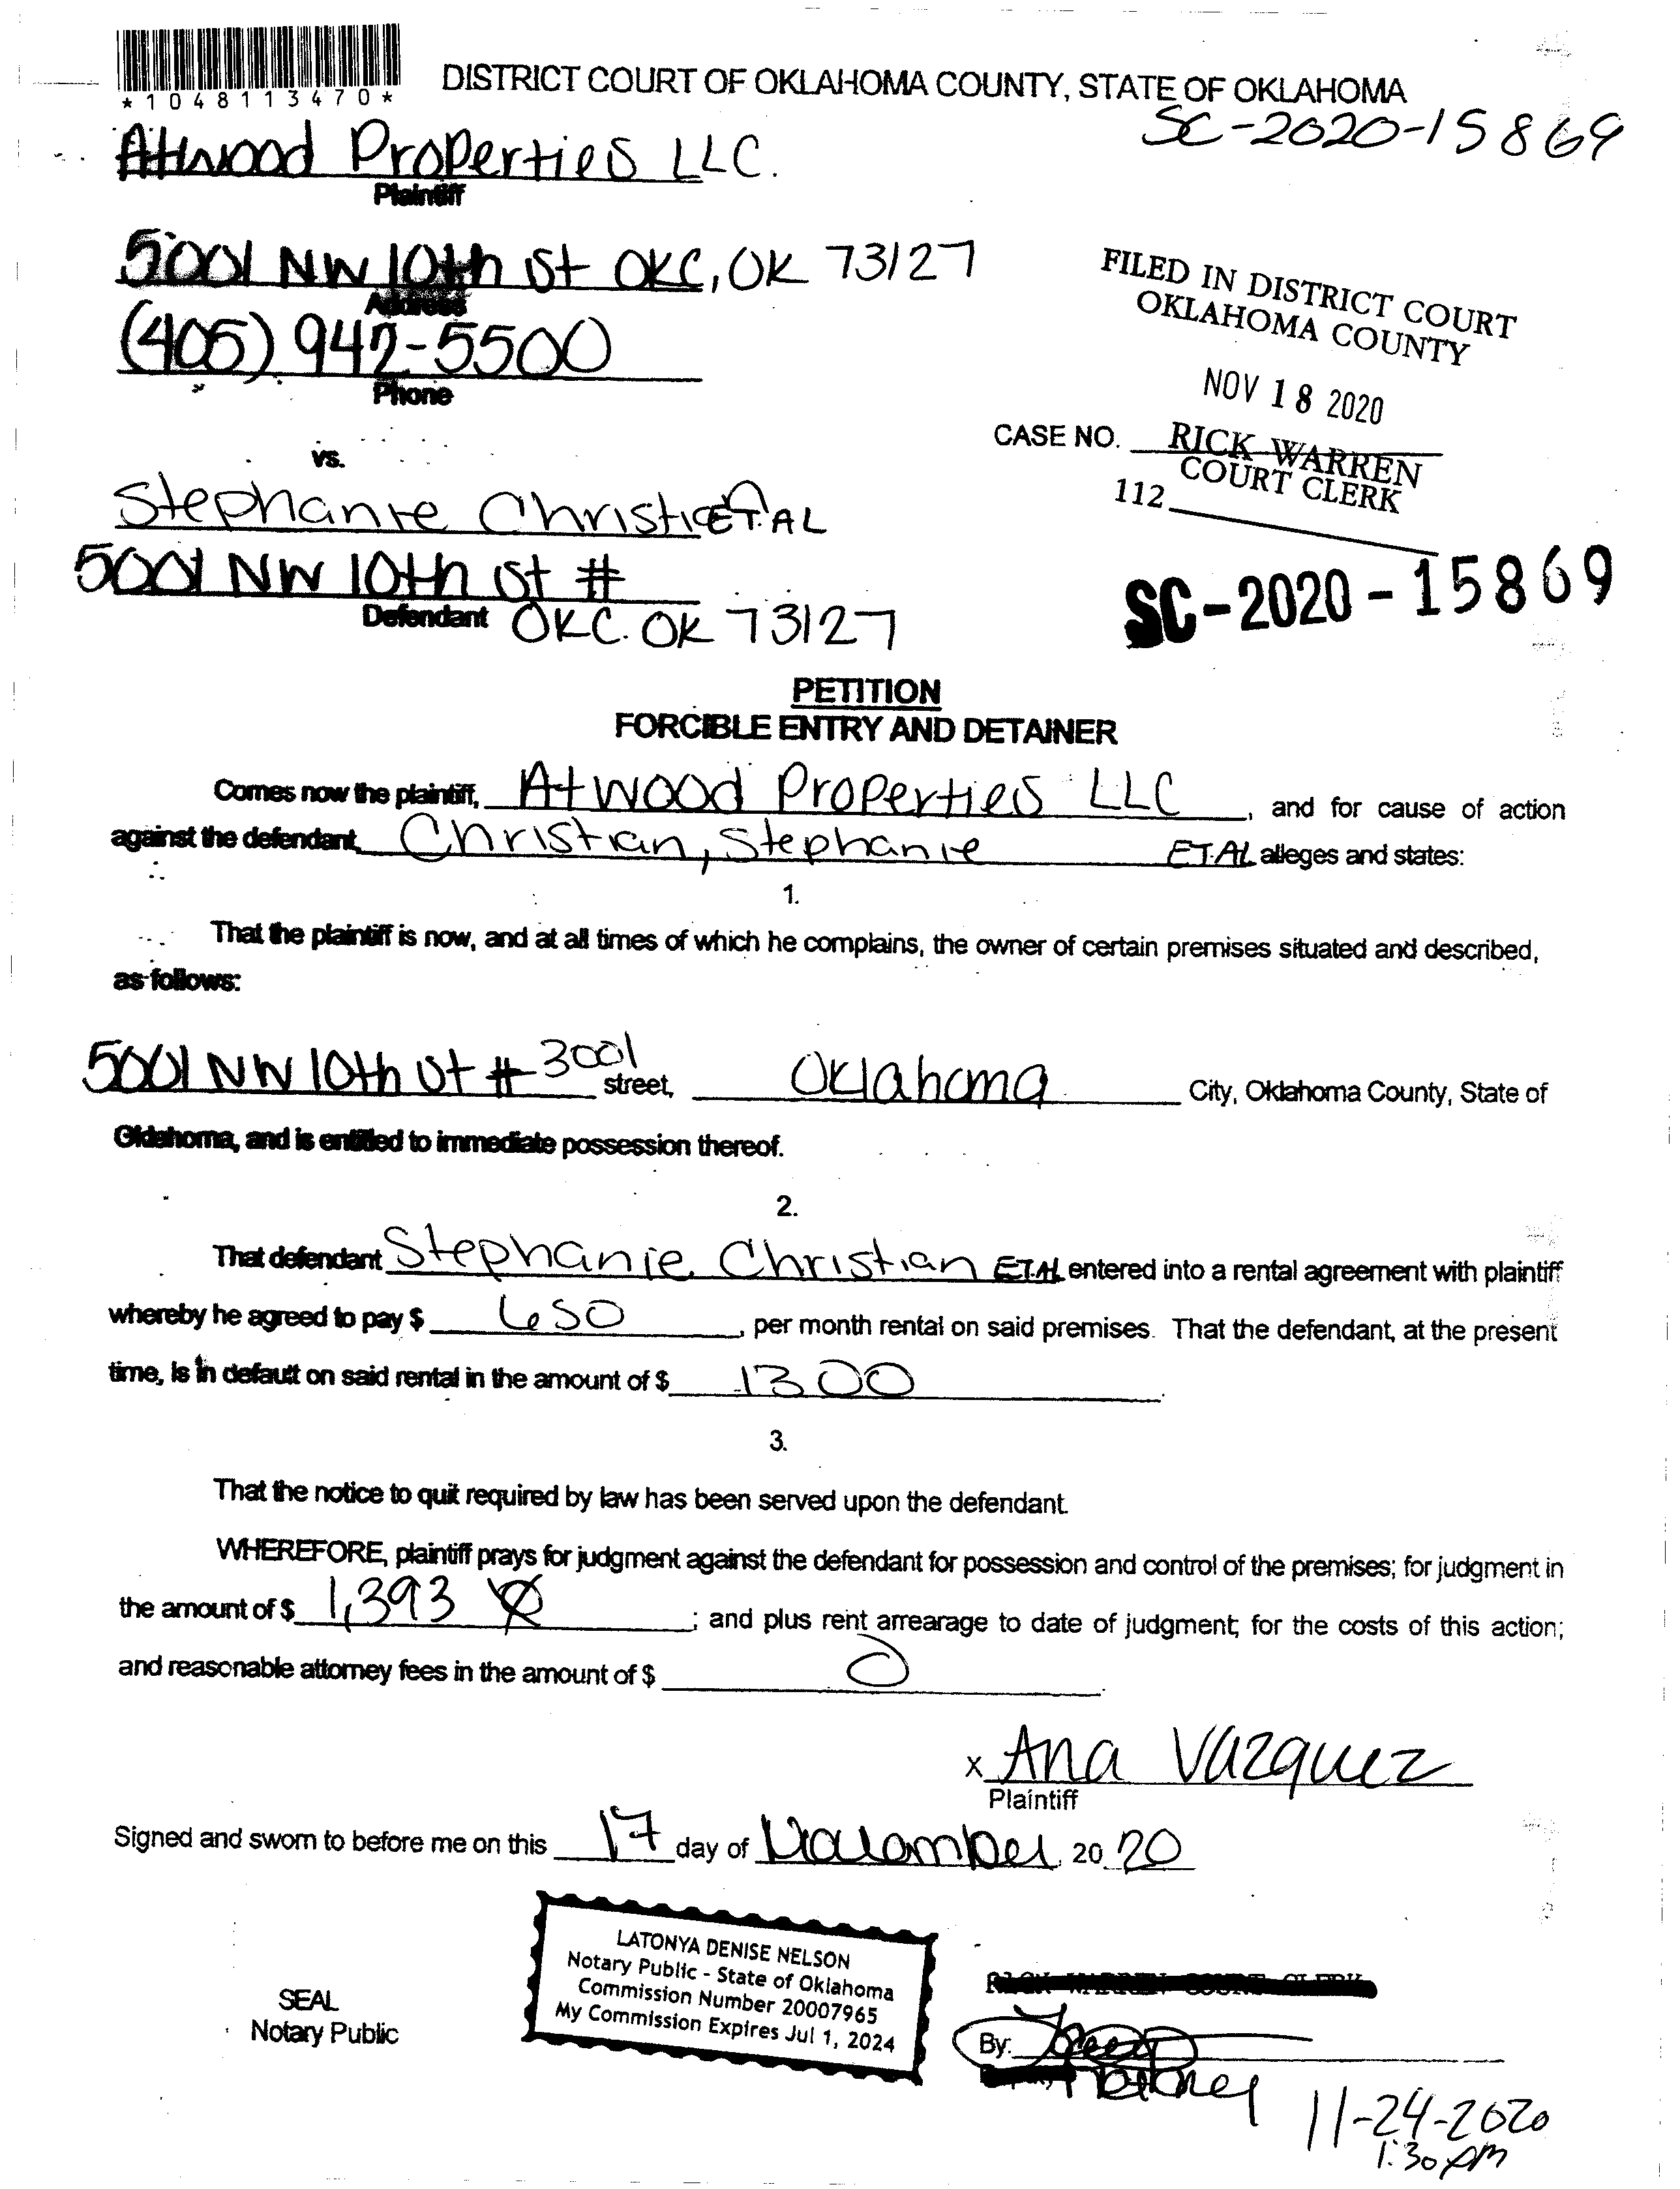 *1048113470*
DISTRICT COURT OF OKLAHOMA COUNTY, STATE OF OKLAHOMA
SC-2020-15869
Atwood Properties LLC.
Plaintiff
5001 NW 10th St OKC, OK 73127
Address
(405) 942-5500
Phone
FILED IN DISTRICT COURT
OKLAHOMA COUNTY
NOV 18 2020
RICK WARREN
COURT CLERK
112
CASE NO.
vs.
Stephanie Christian ET.AL
5001 NW 10th St #
Defendant OKC. OK 73127
SC-2020-15869
PETITION
FORCIBLE ENTRY AND DETAINER
Comes now the plaintiff, Atwood Properties LLC, and for cause of action
against the defendant, Christian, Stephanie ET.AL alleges and states:
1.
That the plaintiff is now, and at all times of which he complains, the owner of certain premises situated and described,
as follows:
5001 NW 10th St # 3001 street, Oklahoma City, Oklahoma County, State of
Oklahoma, and is entitled to immediate possession thereof.
2.
That defendant Stephanie Christian ET.AL entered into a rental agreement with plaintiff
whereby he agreed to pay $ 650, per month rental on said premises. That the defendant, at the present
time, is in default on said rental in the amount of $ 1300.
3.
That the notice to quit required by law has been served upon the defendant.
WHEREFORE, plaintiff prays for judgment against the defendant for possession and control of the premises; for judgment in
the amount of $ 1,393; and plus rent arrearage to date of judgment; for the costs of this action;
and reasonable attorney fees in the amount of $ 0.
x Ana Vazquez
Plaintiff
Signed and sworn to before me on this 17 day of November, 2020
LATONYA DENISE NELSON
Notary Public - State of Oklahoma
Commission Number 20007965
My Commission Expires Jul 1, 2024
SEAL
Notary Public
RICK WARREN COURT CLERK
By:
Notary
11-24-2020
1:30 PM